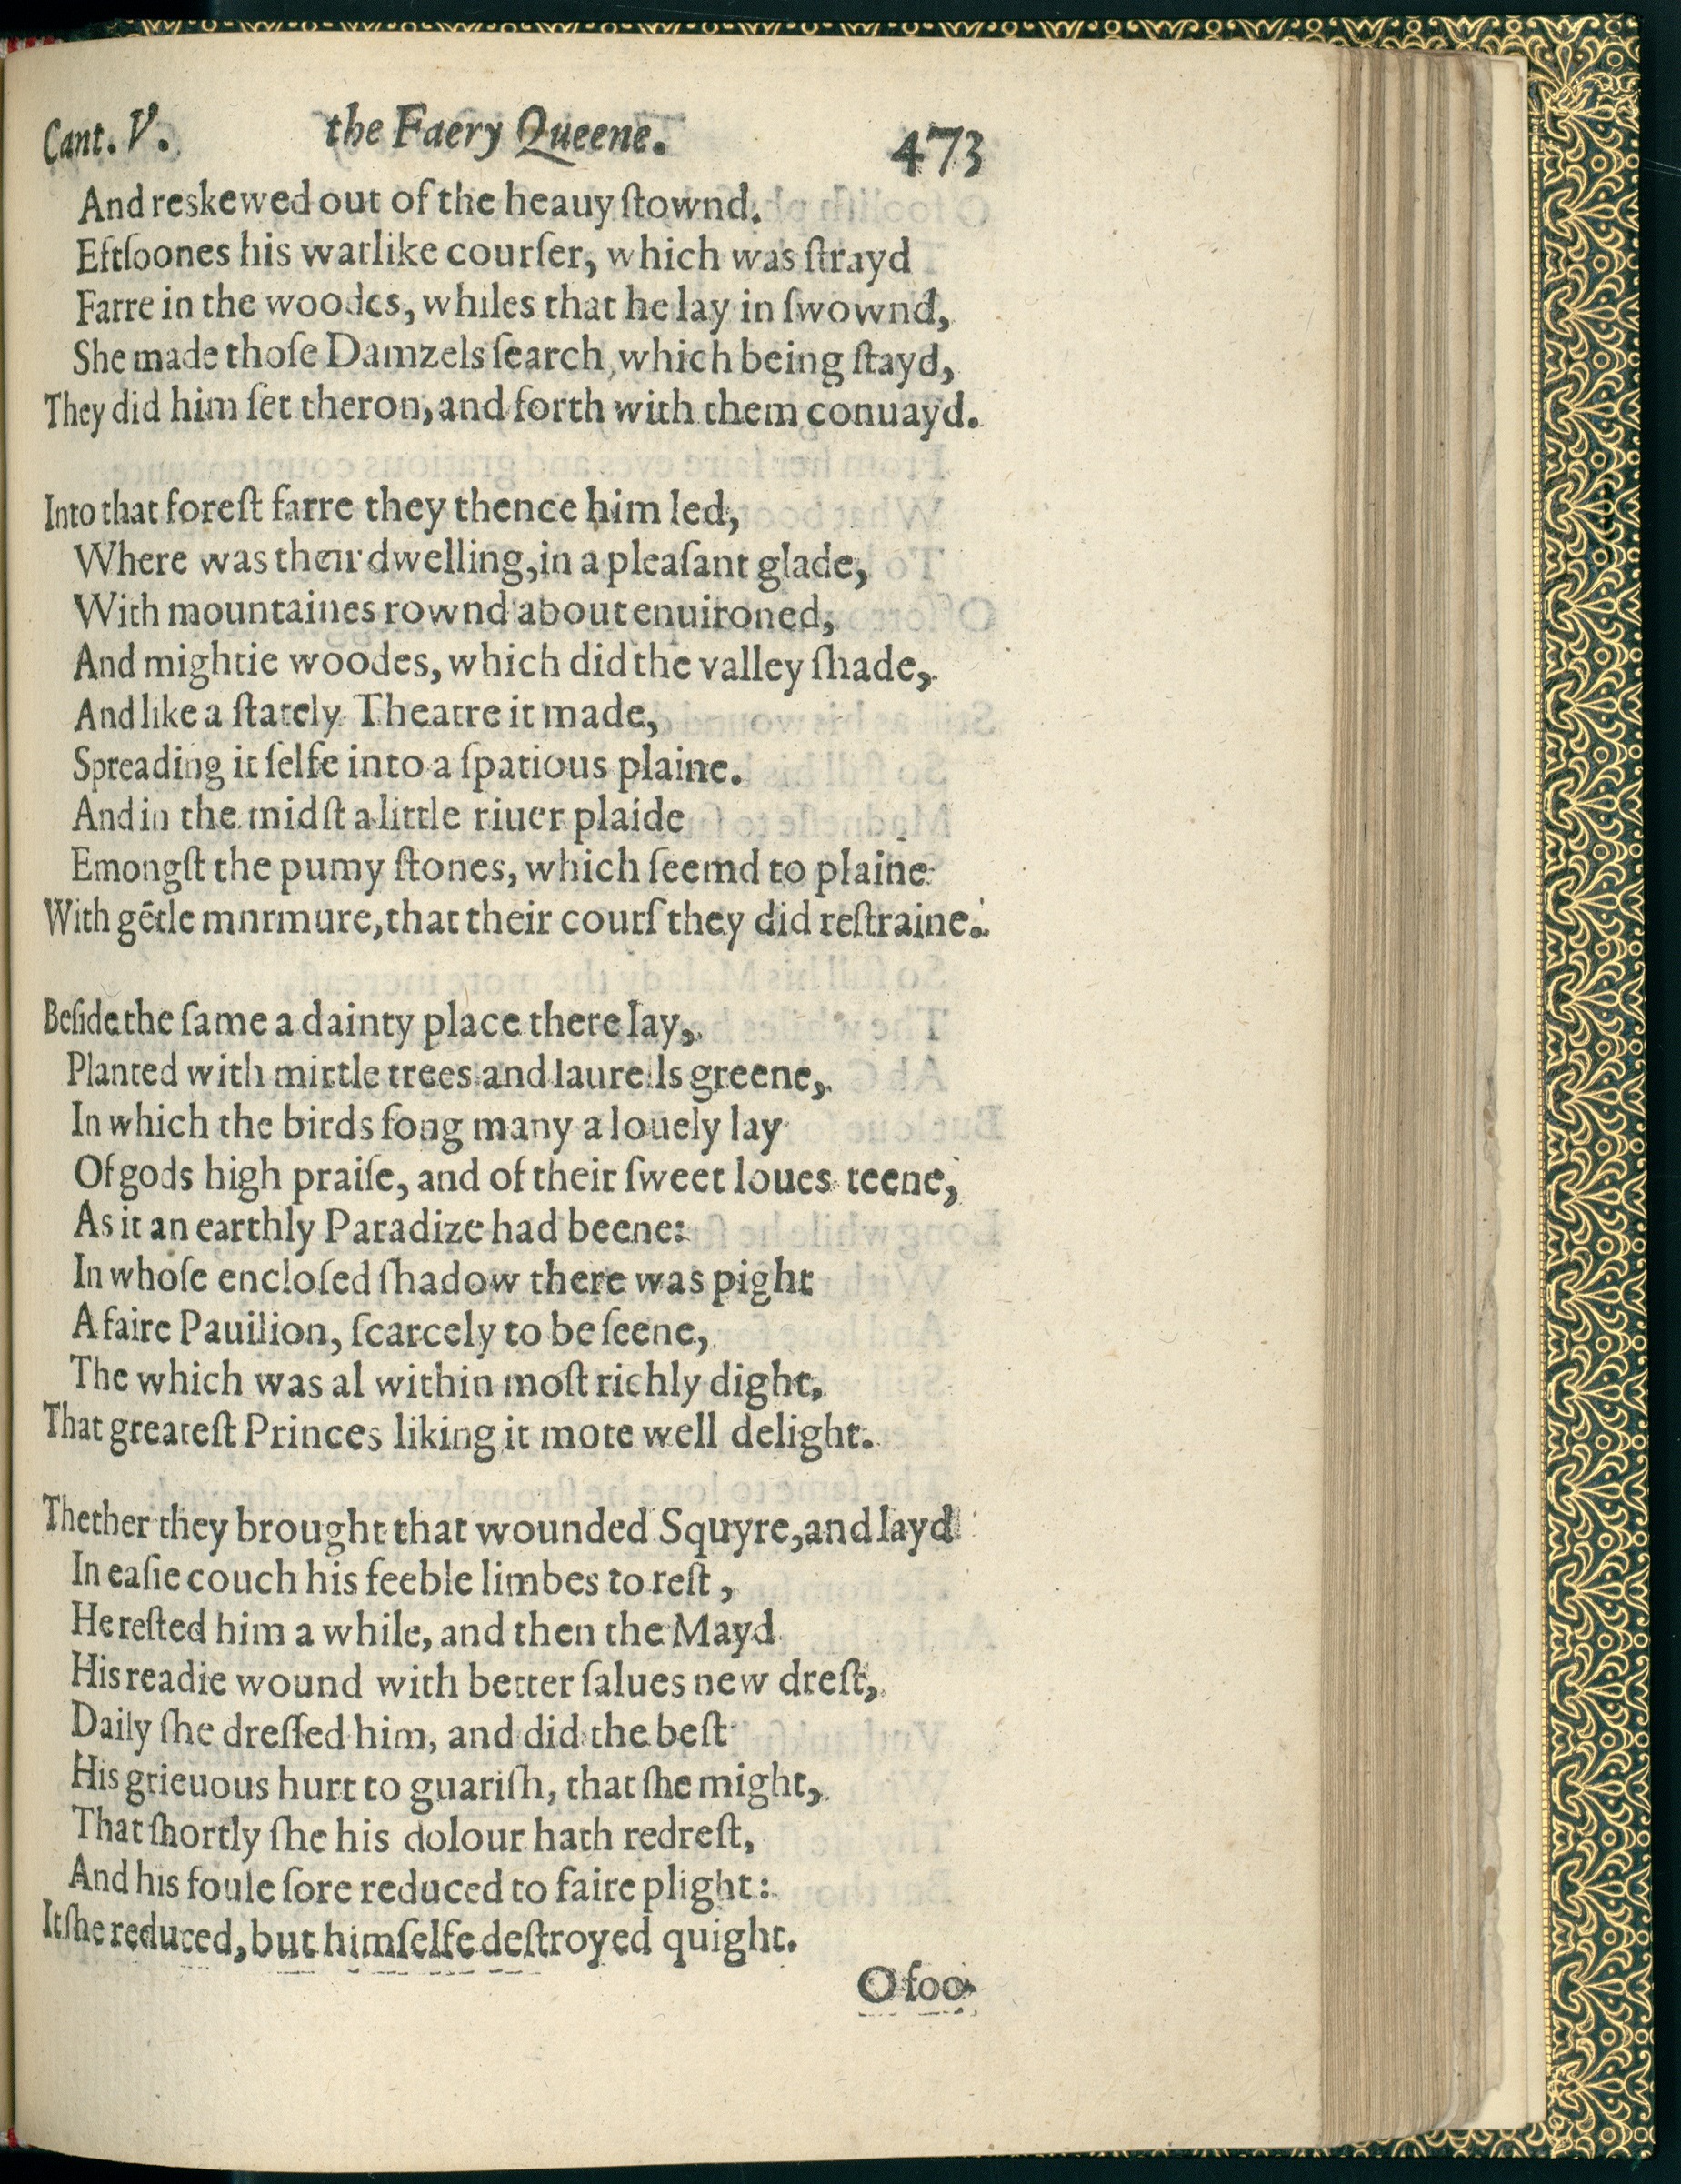 Cant. V. the Faery Queene. 473
And reskewed out of the heauy ſtownd.
Eftſoones his warlike courſer, which was ſtrayd
Farre in the woodes, whiles that he lay in ſwownd,
She made thoſe Damzels ſearch, which being ſtayd,
They did him ſet theron, and forth with them conuayd.
Into that foreſt farre they thence him led,
Where was their dwelling, in a pleaſant glade,
With mountaines rownd about enuironed,
And mightie woodes, which did the valley ſhade,
And like a ſtately Theatre it made,
Spreading it ſelfe into a ſpatious plaine.
And in the midſt a little riuer plaide
Emongſt the pumy ſtones, which ſeemd to plaine
With gētle mnrmure, that their courſ they did reſtraine.
Beſide the ſame a dainty place there lay,
Planted with mirtle trees and laurells greene,
In which the birds ſong many a louely lay
Of gods high praiſe, and of their ſweet loues teene,
As it an earthly Paradize had beene:
In whoſe encloſed ſhadow there was pight
A faire Pauilion, ſcarcely to be ſeene,
The which was al within moſt richly dight,
That greateſt Princes liking it mote well delight.
Thether they brought that wounded Squyre, and layd
In eaſie couch his feeble limbes to reſt,
He reſted him a while, and then the Mayd
His readie wound with better ſalues new dreſt,
Daily ſhe dreſſed him, and did the beſt
His grieuous hurt to guariſh, that ſhe might,
That ſhortly ſhe his dolour hath redreſt,
And his foule ſore reduced to faire plight:
It ſhe reduced, but himſelfe deſtroyed quight.
O foo-